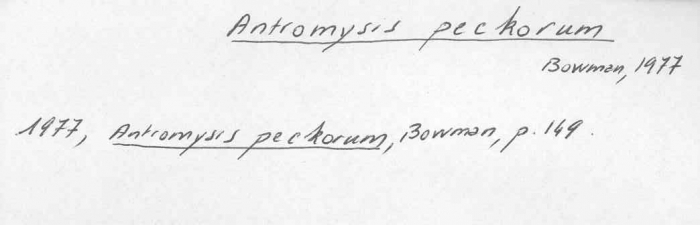 Antromysis peckorum
Bowman, 1977
1977, Antromysis peckorum, Bowman, p. 149.